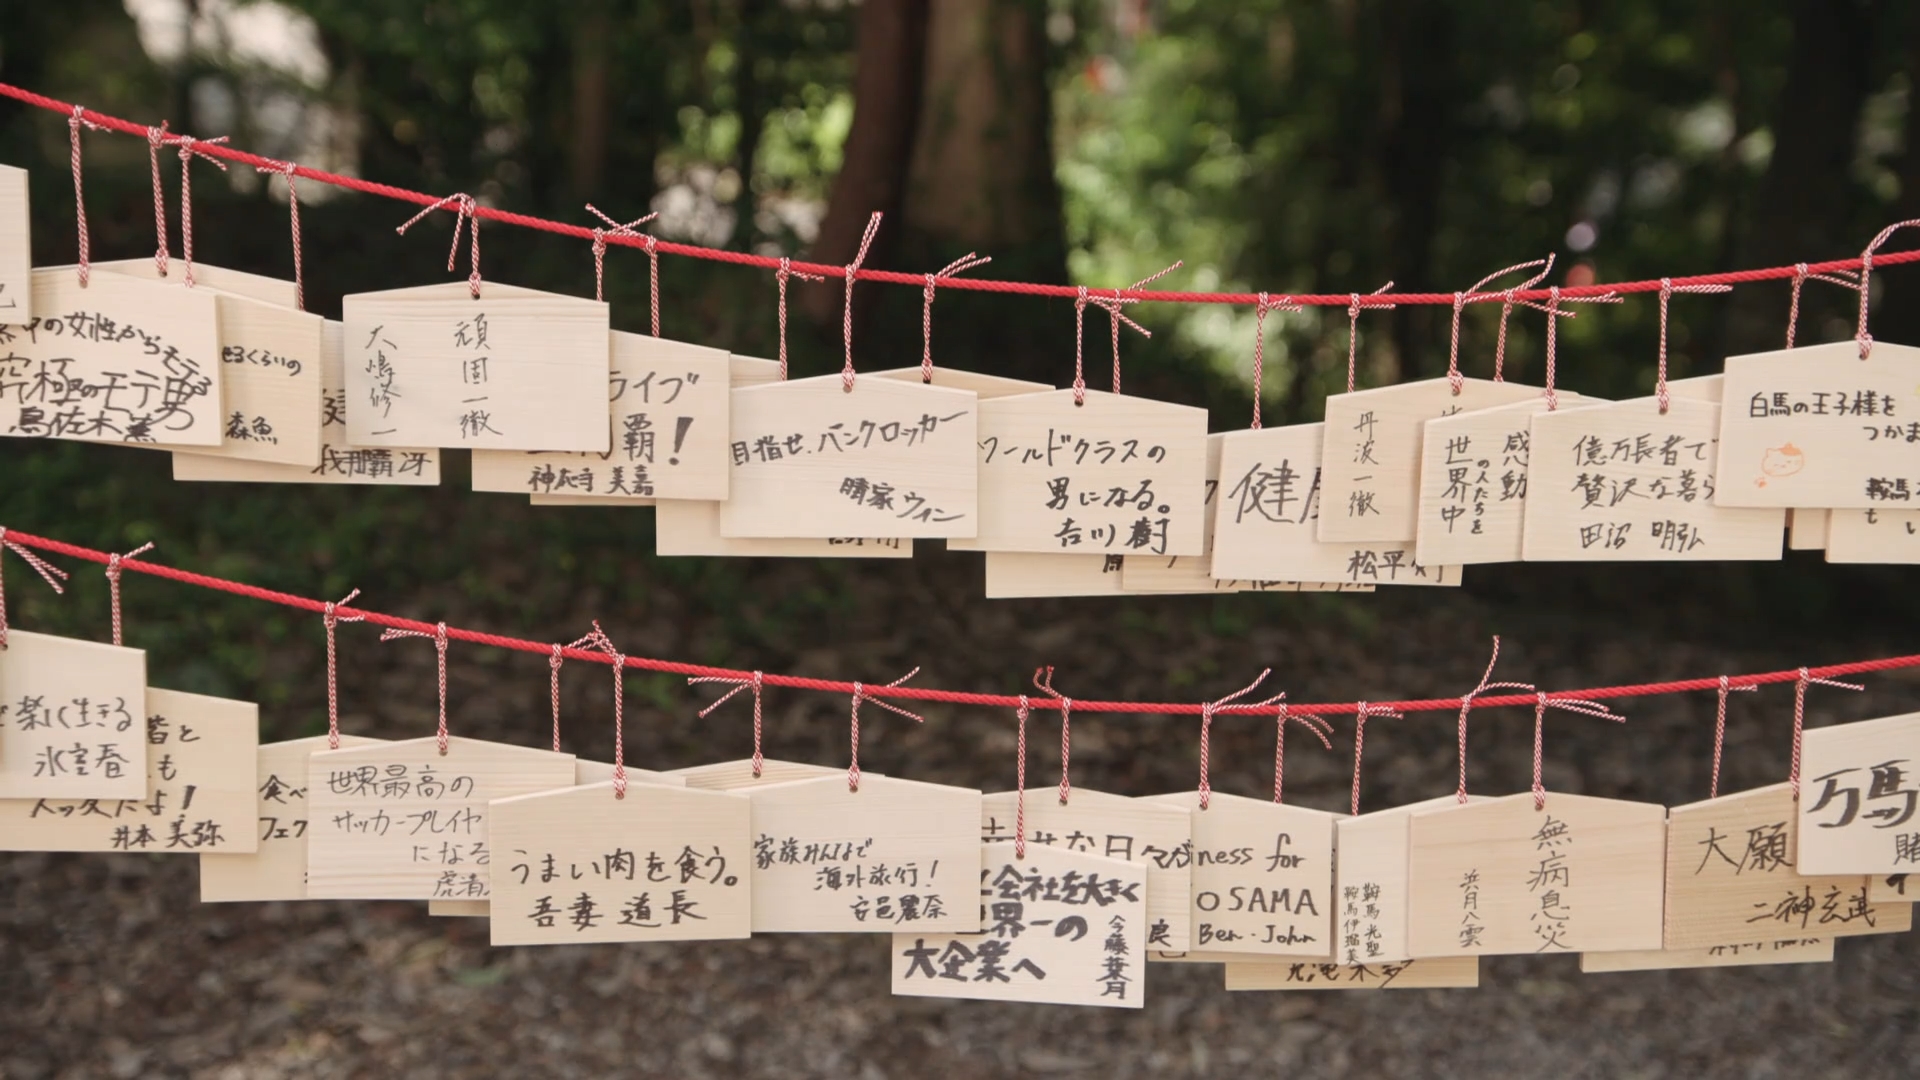 の女性から
究極のモテ男
鳥佐木薫
るくらいの
森魚
我那覇 冴
頑固一徹
大嶋修一
ライブ
覇！
神応寺 美嘉
目指せ、パンクロッカー
晴家 ウィン
ワールドクラスの
男になる。
吉川 樹
健
松平
丹波一徹
世界中
の人たちを
感動
億万長者で
贅沢な暮ら
田沼 明弘
白馬の王子様を
つかま
鞍馬
も
楽しく生きる
氷室春
皆と
も
井本 美弥
食べ
フェ
世界最高の
サッカープレイヤ
になる
うまい肉を食う。
吾妻 道長
家族みんなで
海外旅行！
安邑農奈
な日々が
会社を大きく
界一の
大企業へ
今藤葉月
良
ness for
OSAMA
Ben・John
鞍馬 光聖
鞍馬伊瑠美
無病息災
浜月八雲
大願
二神玄武
万馬
賭